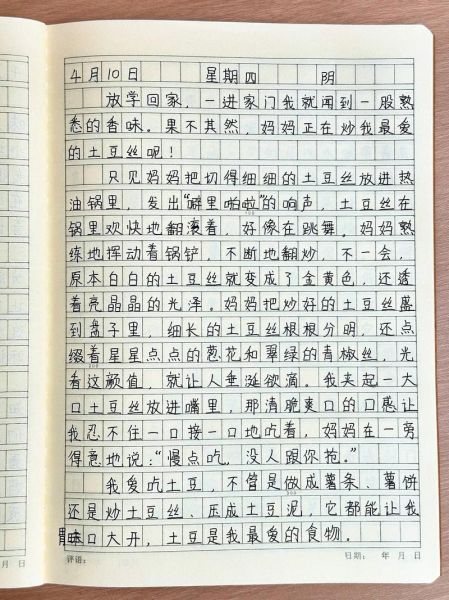 4月10日 星期四 阴
放学回家，一进家门我就闻到一股熟
悉的香味。果不其然，妈妈正在炒我最爱
的土豆丝呢！
只见妈妈把切得细细的土豆丝放进热
油锅里，发出“噼里啪啦”的响声，土豆丝在
锅里欢快地翻滚着，好像在跳舞。妈妈熟
练地挥动着锅铲，不断地翻炒，不一会，
原本白白的土豆丝就变成了金黄色，还透
着亮晶晶的光泽。妈妈把炒好的土豆丝盛
到盘子里，细长的土豆丝根根分明，还点
缀着星星点点的葱花和翠绿的青椒丝，光
看这颜值，就让人垂涎欲滴。我夹起一大
口土豆丝放进嘴里，那清脆爽口的口感让
我忍不住一口接一口地吃着，妈妈在一旁
得意地说：“慢点吃，没人跟你抢。”
我爱吃土豆，不管是做成薯条、薯饼
还是炒土豆丝、压成土豆泥，它都能让我
胃口大开，土豆是我最爱的食物。
评语： 日期： 年 月 日
月 日